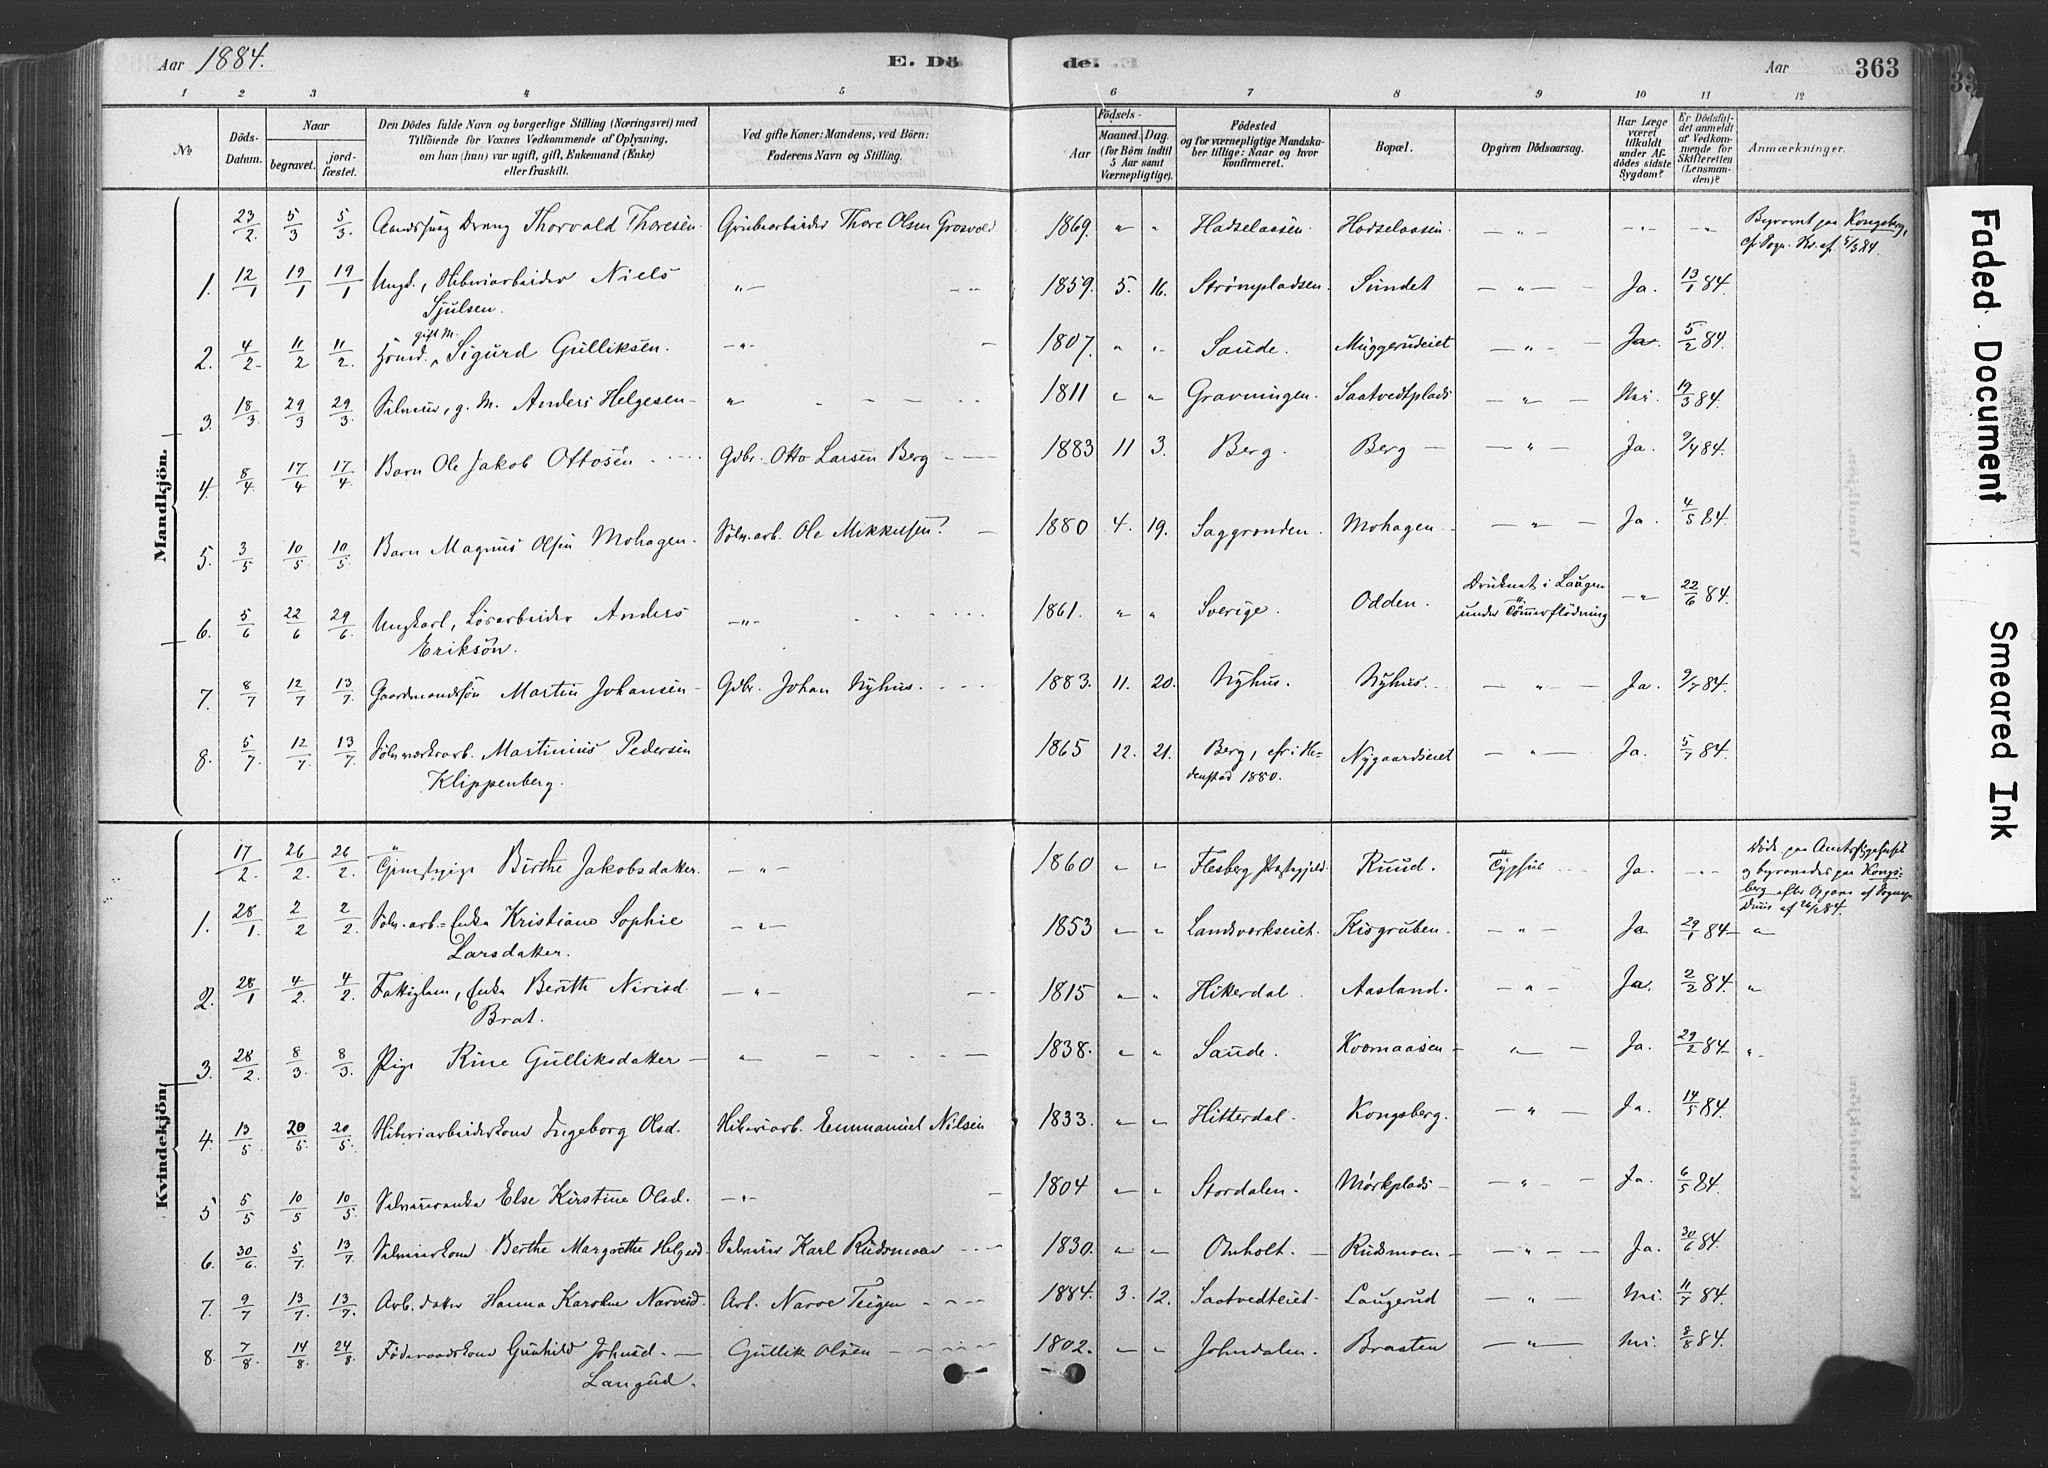 Aar 1884. E. Dö de. Aar 363
1 2 3 4 5 6 7 8 9 10 11 12
№ Döds-Datum. Naar begravet. jord-fæstet. Den Dödes fulde Navn og borgerlige Stilling (Næringsvei) med Tilföiende for Voxnes Vedkommende af Oplysning, om han (hun) var ugift, gift, Enkemand (Enke) eller fraskilt. Ved gifte Koner: Mandens, ved Börn: Faderens Navn og Stilling. Födsels- Aar Maaned. Dag. (for Börn indtil 5 Aar samt Værnepligtige). Födested og for værnepligtige Mandskaber tillige: Naar og hvor konfirmeret. Bopæl. Opgiven Dödsaarsag. Har Læge været tilkaldt under Afdödes sidste Sygdom? Er Dödsfaldet anmeldt af Vedkommende for Skifteretten (Lensmanden)? Anmærkninger.
Mandkjön.
23/2. 5/3 5/3. Dreng Thorvald Thoresen Grubearbeider Thore Olsen Grosvold 1869. " " Hadselaasen. Hadselaasen - " - - " - " Begravet paa Kongsberg, 5/3 84.
1. 12/1 19/1 19/1 Ungk., Sliberiarbeider Niels Sjulsen. " 1859. 5. 16. Strömpladsen. Sundet - " - Ja. 13/1 84.
2. 4/2. 11/2 11/2. gift M. Sigurd Gulliksen. - " - 1807. " " Saude. Muggerudeiet - " - Ja. 5/2 84.
3. 18/3. 29/3 29/3. g. M. Anders Helgesen - " 1811 " " Gravningen. Saatvedtplads - " - Nei. 19/3 84.
4. 8/4. 17/4 17/4 Barn Ole Jakob Ottosen Gdbr. Otto Larsen Berg 1883 11 3. Berg. Berg - " - Ja. 9/4 84.
5. 3/5 10/5 10/5 Barn Magnus Olsen Mohagen. Sölv.arb. Ole Mikkelsen? 1880 4. 19. Saggrenden. Mohagen. - " - Ja. 4/5 84.
6. 5/6 22/6 29/6. Ungkarl, Lösarbeider Anders Eriksön. - " - 1861. " " Sverige. Odden. Druknet i Laagen under Tömmerflödning - " 22/6 84.
7. 8/7 12/7 13/7. Gaardmandssön Martin Johansen Gdbr. Johan Nyhus. 1883. 11. 20. Nyhus. Nyhus. - " - Ja. 9/7 84.
8. 5/7. 12/7 13/7 Sölvværksarb. Martinius Pedersen Klippenberg. 1865 12. 21. Berg, cfr. i Hedenstad 1880. Nygaardseiet - " - Ja. 5/7 84.
Kvindekjön.
17/2. 26/2. 26/2. Tjenestepige Birthe Jakobsdatter. - " - 1860 " " Flesberg Prstgjeld. Ruud. Typhus Ja. - " - Döde paa Amtssygehuset og begravedes paa Kongsberg efter Opgave af 26/2 84.
1. 28/1. 2/2 2/2. Sölv.arb.-Enke Kristiane Sophie Larsdatter. - " - 1853 " " Landsverkseiet. Kisgruben. - " - Ja 29/1 84 - "
2. 28/1 4/2. 4/2. Fattiglem, Enke Berith Nirisd. Brat. - " - 1815 " " Hiterdal. Aasland. - " - Ja. 2/2 84. "
3. 28/2. 8/3 8/3. Pige Rine Gulliksdatter - " 1838. " " Saude. - " - Ja. 29/2 84 - "
4. 13/5 20/5 20/5. Sliberiarbeiderkone Ingeborg Olsd. Sliberiarb. Emmanuel Nilsen 1833. " " Hitterdal. Kongsberg. - " - Ja. 14/5 84.
5 5/5 10/5 10/5. Else Kirstine Olsd. - " - 1804 " " Stordalen. Mörkplads - " - Ja. 6/5 84.
6. 30/6 5/7. 13/7 Berthe Margrethe Helgesd. Karl Rudsmoen 1830. " " Omholt. Rudsmoen - " - Ja. 30/6 84.
7. 9/7 13/7. 13/7. Arb. datter Hanna Karoline Narvesd. Arb. Narve Teigen 1884. 3. 12. Saatvedteiet. Laugerud - " - Nei. 11/7 84.
8. 7/8. 14/8. 24/8. Föderaadskone Gunhild Johnsd. Langud. Gullik Olsen 1802. " " Johndalen. Braaten - " - Nei. 8/8 84.
Faded Document
Smeared Ink